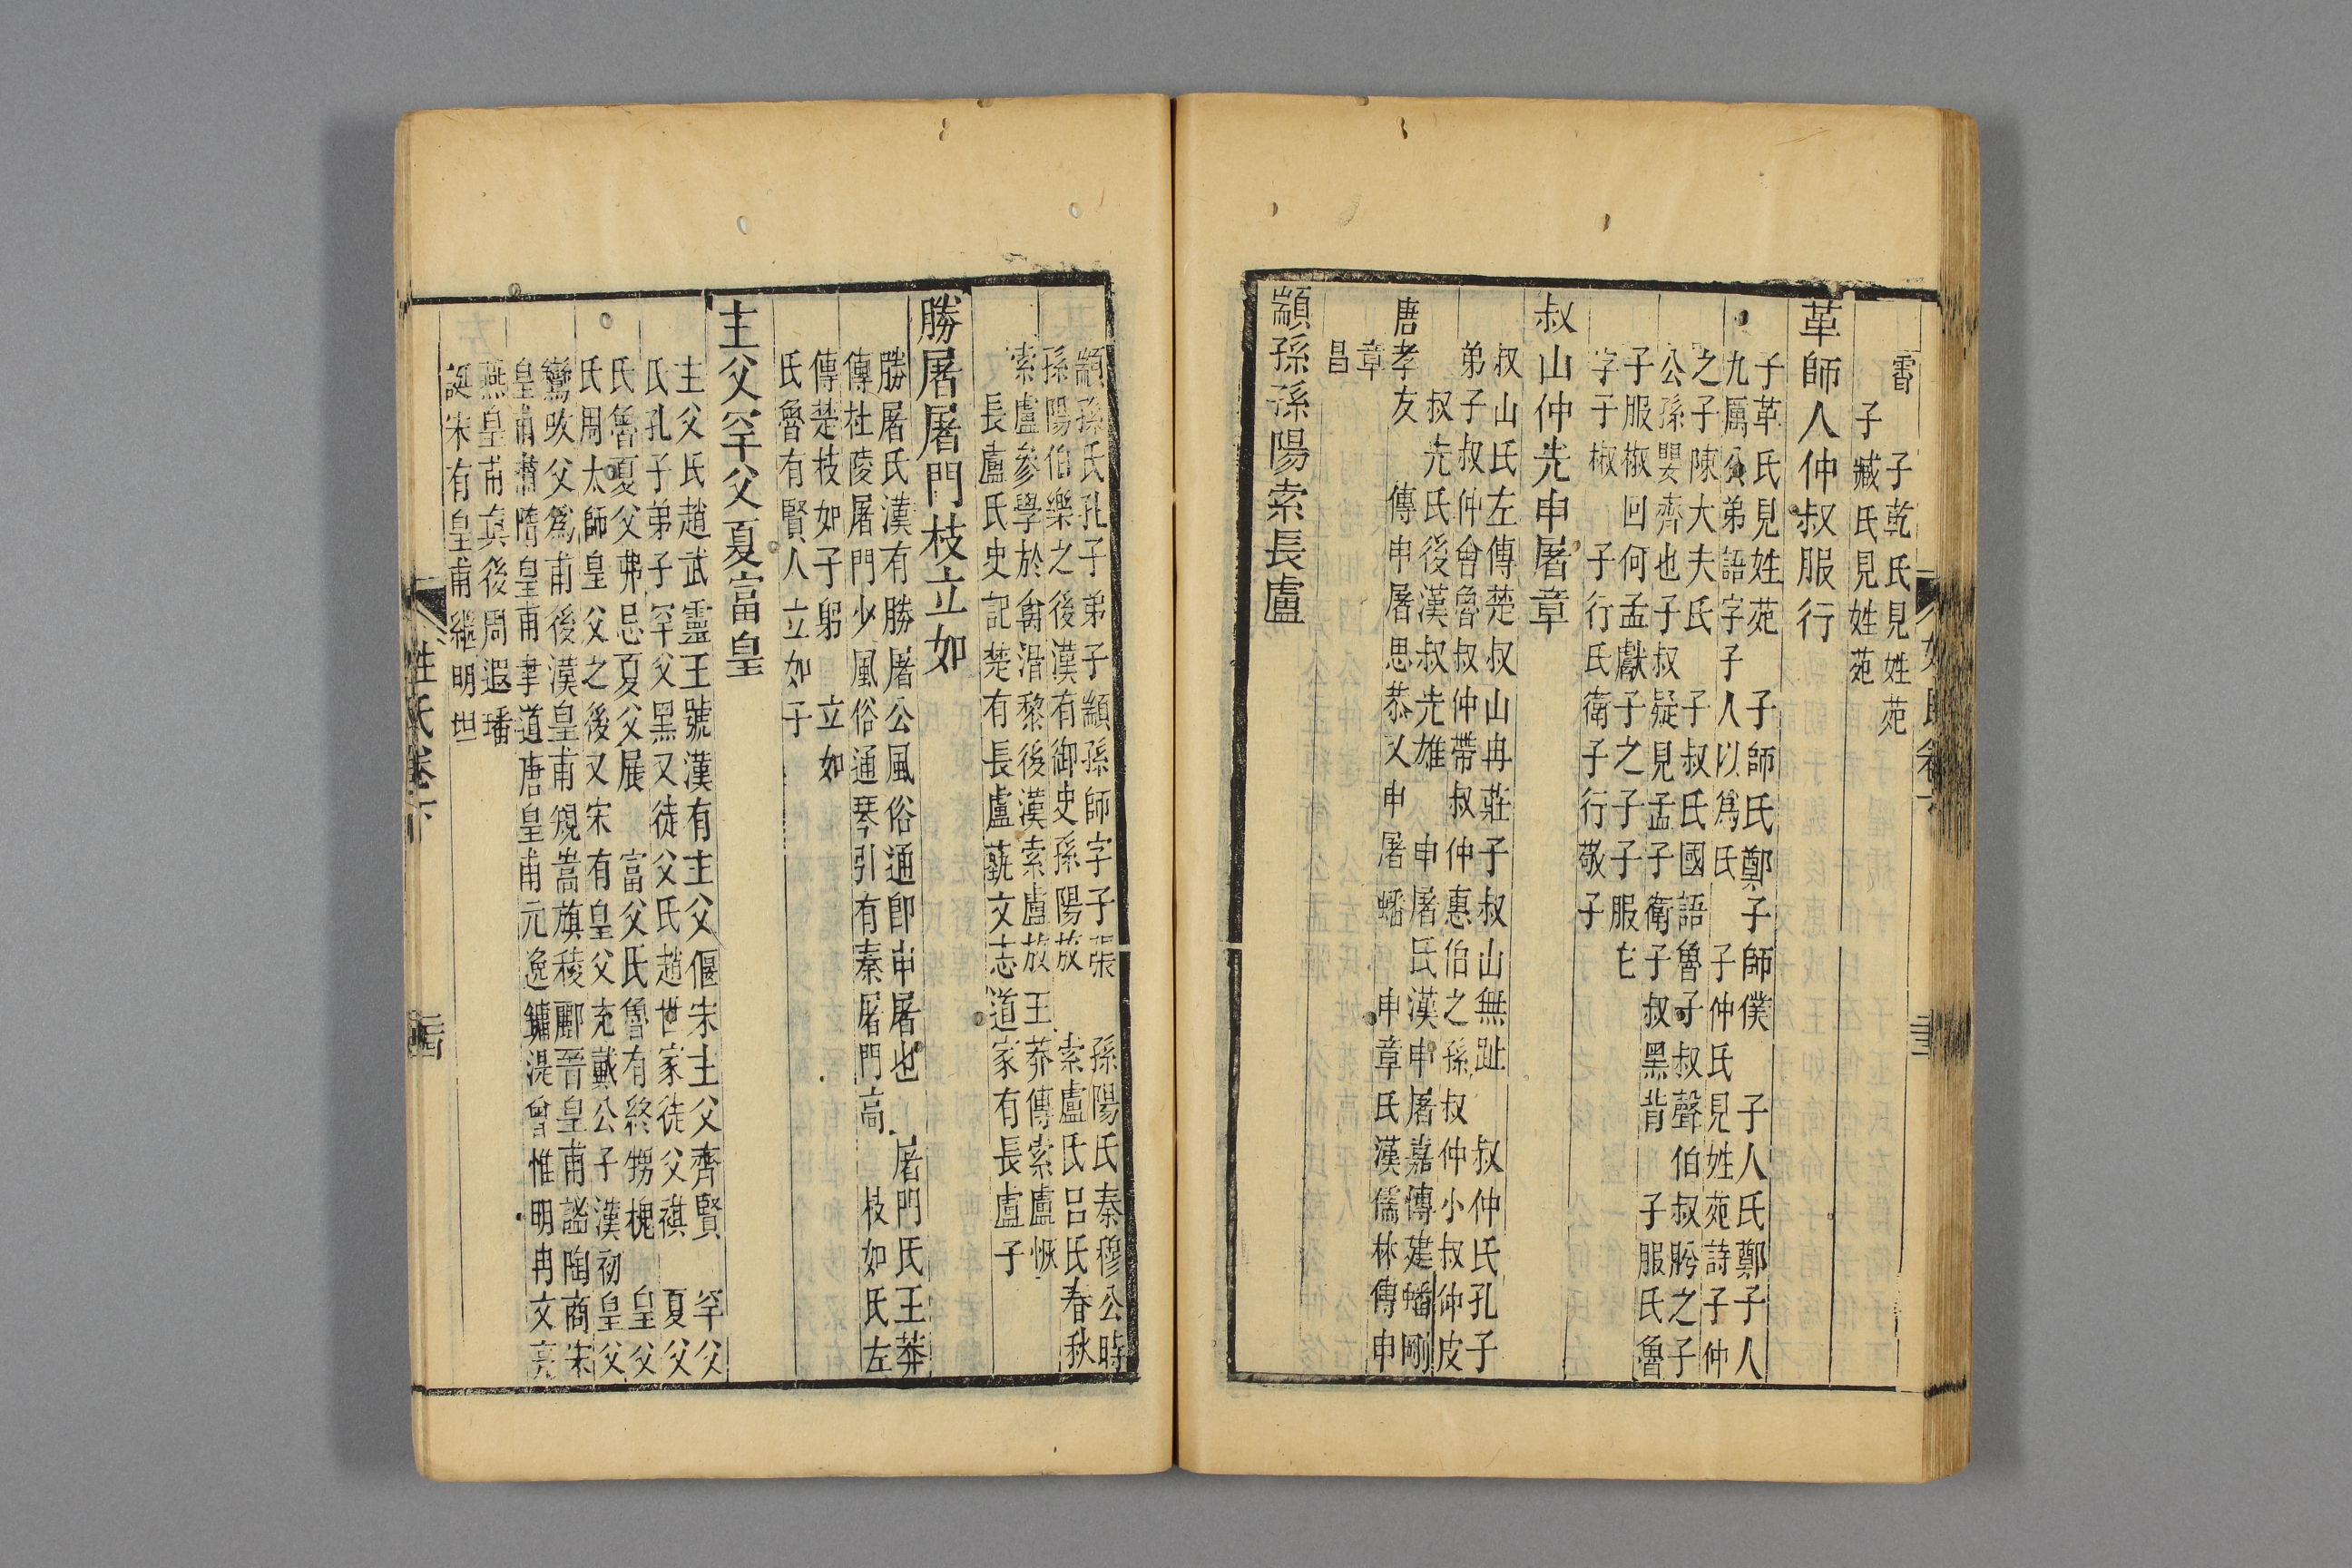 霤　子乾氏見姓苑
子臧氏見姓苑
革師人仲叔服行
子革氏見姓苑　子師氏鄭子師僕　子人氏鄭子人
九厲公弟語字子人以爲氏　子仲氏見姓苑詩子仲
之子陳大夫氏　子叔氏國語魯子叔聲伯叔肸之子
公孫嬰齊也子叔疑見孟子衛子叔黑背　子服氏魯
子服椒回何孟獻子之子子服它
字子椒　子行氏衛子行敬子
叔山仲先申屠章
叔山氏左傳楚叔山冉莊子叔山無趾　叔仲氏孔子
弟子叔仲會魯叔仲帶叔仲惠伯之孫叔仲小叔仲皮
叔先氏後漢叔先雄　申屠氏漢申屠嘉傳建蟠剛
唐孝友傳申屠思恭又申屠蟠　申章氏漢儒林傳申
章
昌
顓孫孫陽索長盧
顓孫氏孔子弟子顓孫師字子張　孫陽氏秦穆公時
孫陽伯樂之後漢有御史孫陽放　索盧氏呂氏春秋
索盧參學於禽滑黎後漢索盧放王莽傳索盧恢
長盧氏史記楚有長盧藝文志道家有長盧子
勝屠屠門枝立如
勝屠氏漢有勝屠公風俗通卽申屠也　屠門氏王莽
傳杜陵屠門少風俗通琴引有秦屠門高　枝如氏左
傳楚枝如子躬　立如
氏魯有賢人立如子
主父罕父夏富皇
主父氏趙武靈王號漢有主父偃宋主父齊賢　罕父
氏孔子弟子罕父黑又徒父氏趙世家徒父祺　夏父
氏魯夏父弗忌夏父展　富父氏魯有終甥槐　皇父
氏周太師皇父之後又宋有皇父充戴公子漢初皇父
鸞改父爲甫後漢皇甫規嵩旗稜酈晉皇甫謐陶商宋
皇甫肅隋皇甫聿道唐皇甫元逸鏞湜曾惟明冉文亮
燕皇甫眞後周遐璠
誕宋有皇甫繼明世
姓氏卷下